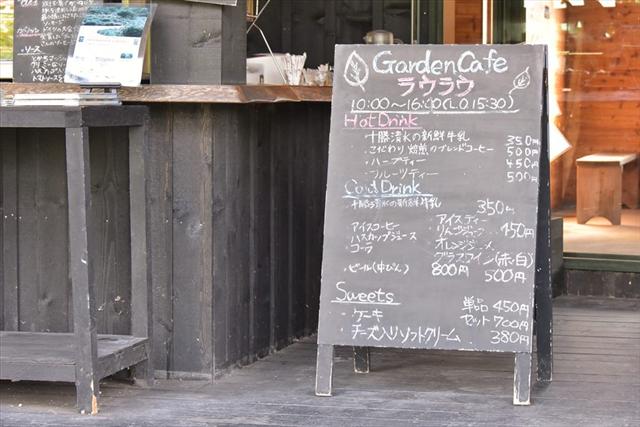 Garden Cafe
ラウラウ
10:00〜16:00(L.O 15:30)
Hot Drink
・十勝清水の新鮮牛乳 350円
・こだわり焙煎のブレンドコーヒー 500円
・ハーブティー 450円
・フルーツティー 500円
Cold Drink
・十勝清水の新鮮牛乳 350円
アイスコーヒー アイスティー
ハスカップジュース りんごジュース 450円
コーラ オレンジジュース
グラスワイン(赤・白)
・ビール(中びん) 800円 500円
Sweets
・ケーキ 単品 450円
セット 700円
・チーズ入りソフトクリーム 380円